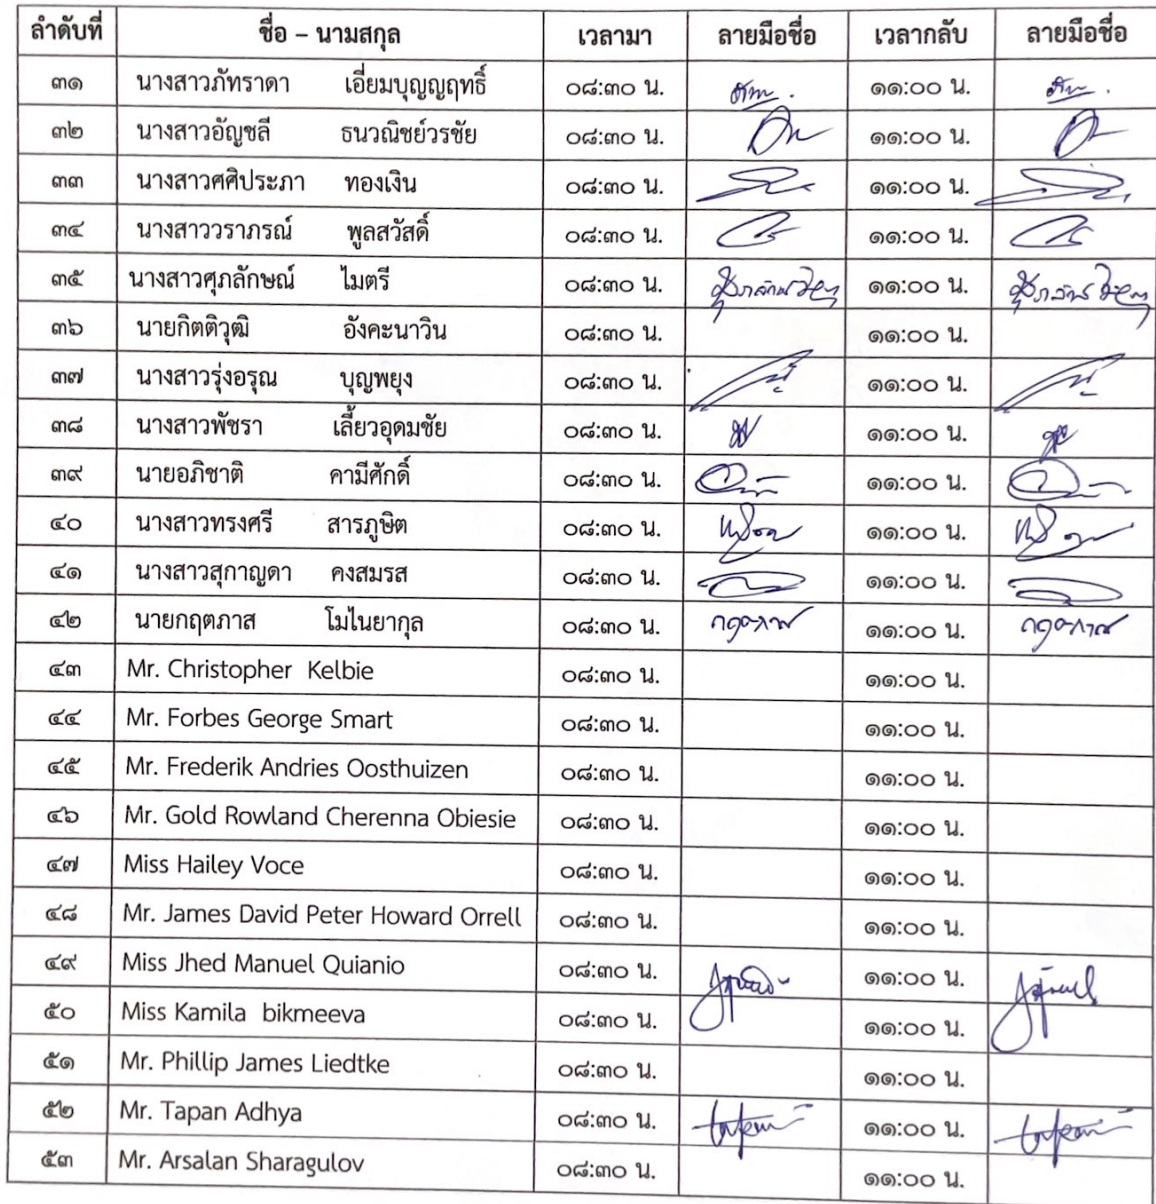 ลำดับที่ ชื่อ – นามสกุล เวลามา ลายมือชื่อ เวลากลับ ลายมือชื่อ
๓๑ นางสาวภัทราดา เอี่ยมบุญญฤทธิ์ ๐๘:๓๐ น. ๑๑:๐๐ น.
๓๒ นางสาวอัญชลี ธนวณิชย์วรชัย ๐๘:๓๐ น. ๑๑:๐๐ น.
๓๓ นางสาวศศิประภา ทองเงิน ๐๘:๓๐ น. ๑๑:๐๐ น.
๓๔ นางสาววราภรณ์ พูลสวัสดิ์ ๐๘:๓๐ น. ๑๑:๐๐ น.
๓๕ นางสาวศุภลักษณ์ ไมตรี ๐๘:๓๐ น. ๑๑:๐๐ น.
๓๖ นายกิตติวุฒิ อังคะนาวิน ๐๘:๓๐ น. ๑๑:๐๐ น.
๓๗ นางสาวรุ่งอรุณ บุญพยุง ๐๘:๓๐ น. ๑๑:๐๐ น.
๓๘ นางสาวพัชรา เลี้ยวอุดมชัย ๐๘:๓๐ น. ๑๑:๐๐ น.
๓๙ นายอภิชาติ คามีศักดิ์ ๐๘:๓๐ น. ๑๑:๐๐ น.
๔๐ นางสาวทรงศรี สารภูษิต ๐๘:๓๐ น. ๑๑:๐๐ น.
๔๑ นางสาวสุกาญดา คงสมรส ๐๘:๓๐ น. ๑๑:๐๐ น.
๔๒ นายกฤตภาส โมไนยากุล ๐๘:๓๐ น. กฤตภาส ๑๑:๐๐ น. กฤตภาส
๔๓ Mr. Christopher Kelbie ๐๘:๓๐ น. ๑๑:๐๐ น.
๔๔ Mr. Forbes George Smart ๐๘:๓๐ น. ๑๑:๐๐ น.
๔๕ Mr. Frederik Andries Oosthuizen ๐๘:๓๐ น. ๑๑:๐๐ น.
๔๖ Mr. Gold Rowland Cherenna Obiesie ๐๘:๓๐ น. ๑๑:๐๐ น.
๔๗ Miss Hailey Voce ๐๘:๓๐ น. ๑๑:๐๐ น.
๔๘ Mr. James David Peter Howard Orrell ๐๘:๓๐ น. ๑๑:๐๐ น.
๔๙ Miss Jhed Manuel Quianio ๐๘:๓๐ น. ๑๑:๐๐ น.
๕๐ Miss Kamila bikmeeva ๐๘:๓๐ น. ๑๑:๐๐ น.
๕๑ Mr. Phillip James Liedtke ๐๘:๓๐ น. ๑๑:๐๐ น.
๕๒ Mr. Tapan Adhya ๐๘:๓๐ น. ๑๑:๐๐ น.
๕๓ Mr. Arsalan Sharagulov ๐๘:๓๐ น. ๑๑:๐๐ น.